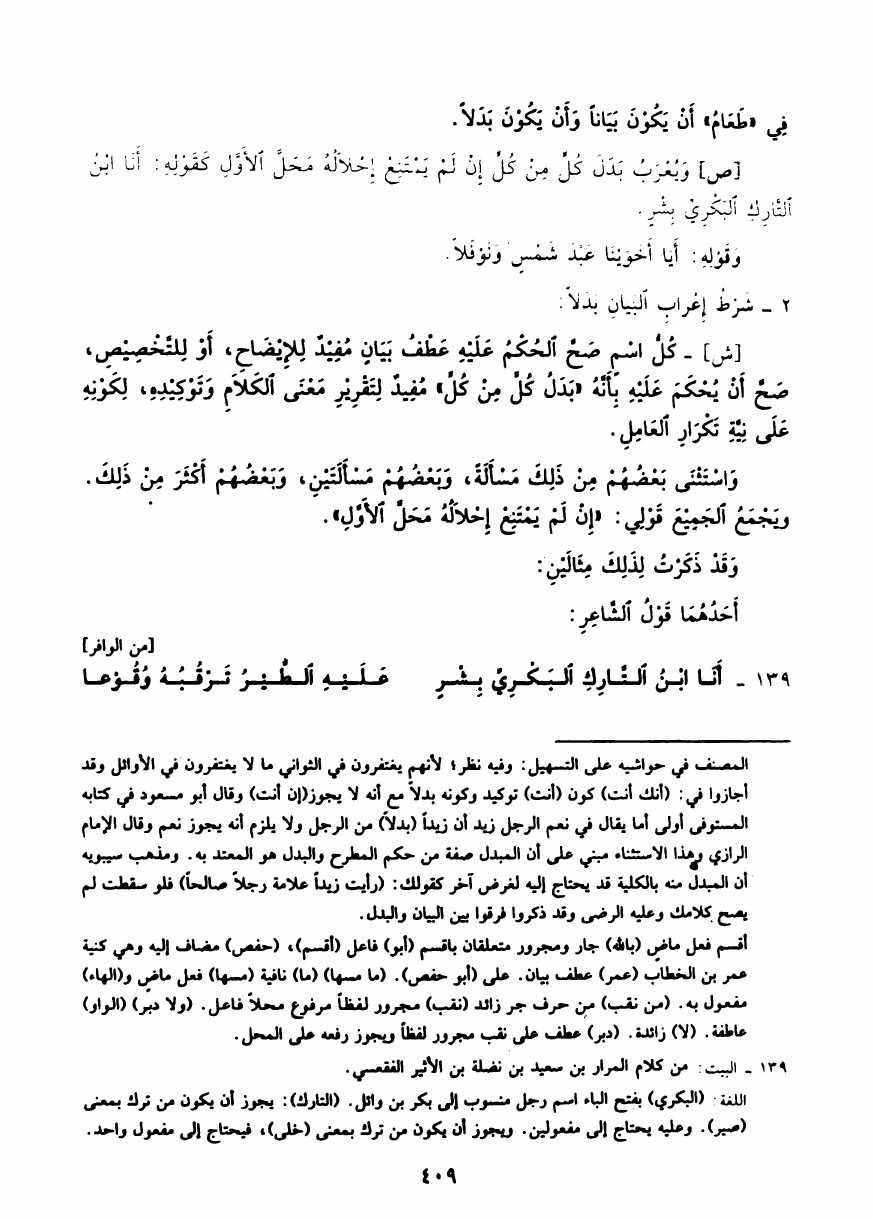 فِي «طَعَامُ» أَنْ يَكُوْنَ بَيَاناً وَأَنْ يَكُوْنَ بَدَلاً.
[ص] وَيُعْرَبُ بَدَلَ كُلٍّ مِنْ كُلٍّ إِنْ لَمْ يَمْتَنِعْ إِحْلاَلُهُ مَحَلَّ ٱلأَوَّلِ كَقَوْلِهِ: أَنَا ابْنُ
ٱلتَّارِكِ ٱلْبَكْرِيِّ بِشْرٍ.
وَقَوْلِهِ: أَيَا أَخَوَيْنَا عَبْدَ شَمْسٍ وَنَوْفَلاً.
٢ - شَرْطُ إِعْرابِ ٱلبَيانِ بَدَلاً:
[ش] - كُلُّ اسْمٍ صَحَّ ٱلْحُكْمُ عَلَيْهِ عَطْفُ بَيَانٍ مُفِيْدٌ لِلإِيْضَاحِ، أَوْ لِلتَّخْصِيْصِ،
صَحَّ أَنْ يُحْكَمَ عَلَيْهِ بِأَنَّهُ «بَدَلُ كُلٍّ مِنْ كُلٍّ» مُفِيدٌ لِتَقْرِيْرِ مَعْنَى ٱلكَلاَمِ وَتَوْكِيْدِهِ، لِكَوْنِهِ
عَلَى نِيَّةِ تَكْرَارِ ٱلعَامِلِ.
وَاسْتَثْنَى بَعْضُهُمْ مِنْ ذَلِكَ مَسْأَلَةً، وَبَعْضُهُمْ مَسْأَلَتَيْنِ، وَبَعْضُهُمْ أَكْثَرَ مِنْ ذَلِكَ.
ويَجْمَعُ ٱلجَمِيْعَ قَوْلِي: «إِنْ لَمْ يَمْتَنِعْ إِحْلاَلُهُ مَحَلَّ ٱلأَوَّلِ».
وَقَدْ ذَكَرْتُ لِذَلِكَ مِثَالَيْنِ:
أَحَدُهُمَا قَوْلُ ٱلشَّاعِرِ:
[من الوافر]
١٣٩ - أَنَا ابْنُ ٱلتَّارِكِ ٱلبَكْرِيِّ بِشْرٍ عَلَيْهِ ٱلطَّيْرُ تَرْقُبُهُ وُقُوْعا
المصنف في حواشيه على التسهيل: وفيه نظر؛ لأنهم يغتفرون في الثواني ما لا يغتفرون في الأوائل وقد
أجازوا في: (أنك أنت) كون (أنت) توكيد وكونه بدلاً مع أنه لا يجوز(إن أنت) وقال أبو مسعود في كتابه
المستوفى أولى أما يقال في نعم الرجل زيد أن زيداً (بدلاً) من الرجل ولا يلزم أنه يجوز نعم وقال الإمام
الرازي وهذا الاستثناء مبني على أن المبدل صفة من حكم المطرح والبدل هو المعتد به. ومذهب سيبويه
أن المبدل منه بالكلية قد يحتاج إليه لغرض آخر كقولك: (رأيت زيداً علامة رجلاً صالحاً) فلو سقطت لم
يصح كلامك وعليه الرضى وقد ذكروا فرقوا بين البيان والبدل.
أقسم فعل ماض (بالله) جار ومجرور متعلقان باقسم (أبو) فاعل (أقسم)، (حفص) مضاف إليه وهي كنية
عمر بن الخطاب (عمر) عطف بيان. على (أبو حفص). (ما مسها) (ما) نافية (مسها) فعل ماض و(الهاء)
مفعول به. (من نقب) من حرف جر زائد (نقب) مجرور لفظاً مرفوع محلاً فاعل. (ولا دبر) (الواو)
عاطفة. (لا) زائدة. (دبر) عطف على نقب مجرور لفظاً ويجوز رفعه على المحل.
١٣٩ - البيت: من كلام المرار بن سعيد بن نضلة بن الأثير الفقعسي.
اللغة: (البكري) بفتح الباء اسم رجل منسوب إلى بكر بن وائل. (التارك): يجوز أن يكون من ترك بمعنى
(صير). وعليه يحتاج إلى مفعولين. ويجوز أن يكون من ترك بمعنى (خلى)، فيحتاج إلى مفعول واحد.
٤٠٩